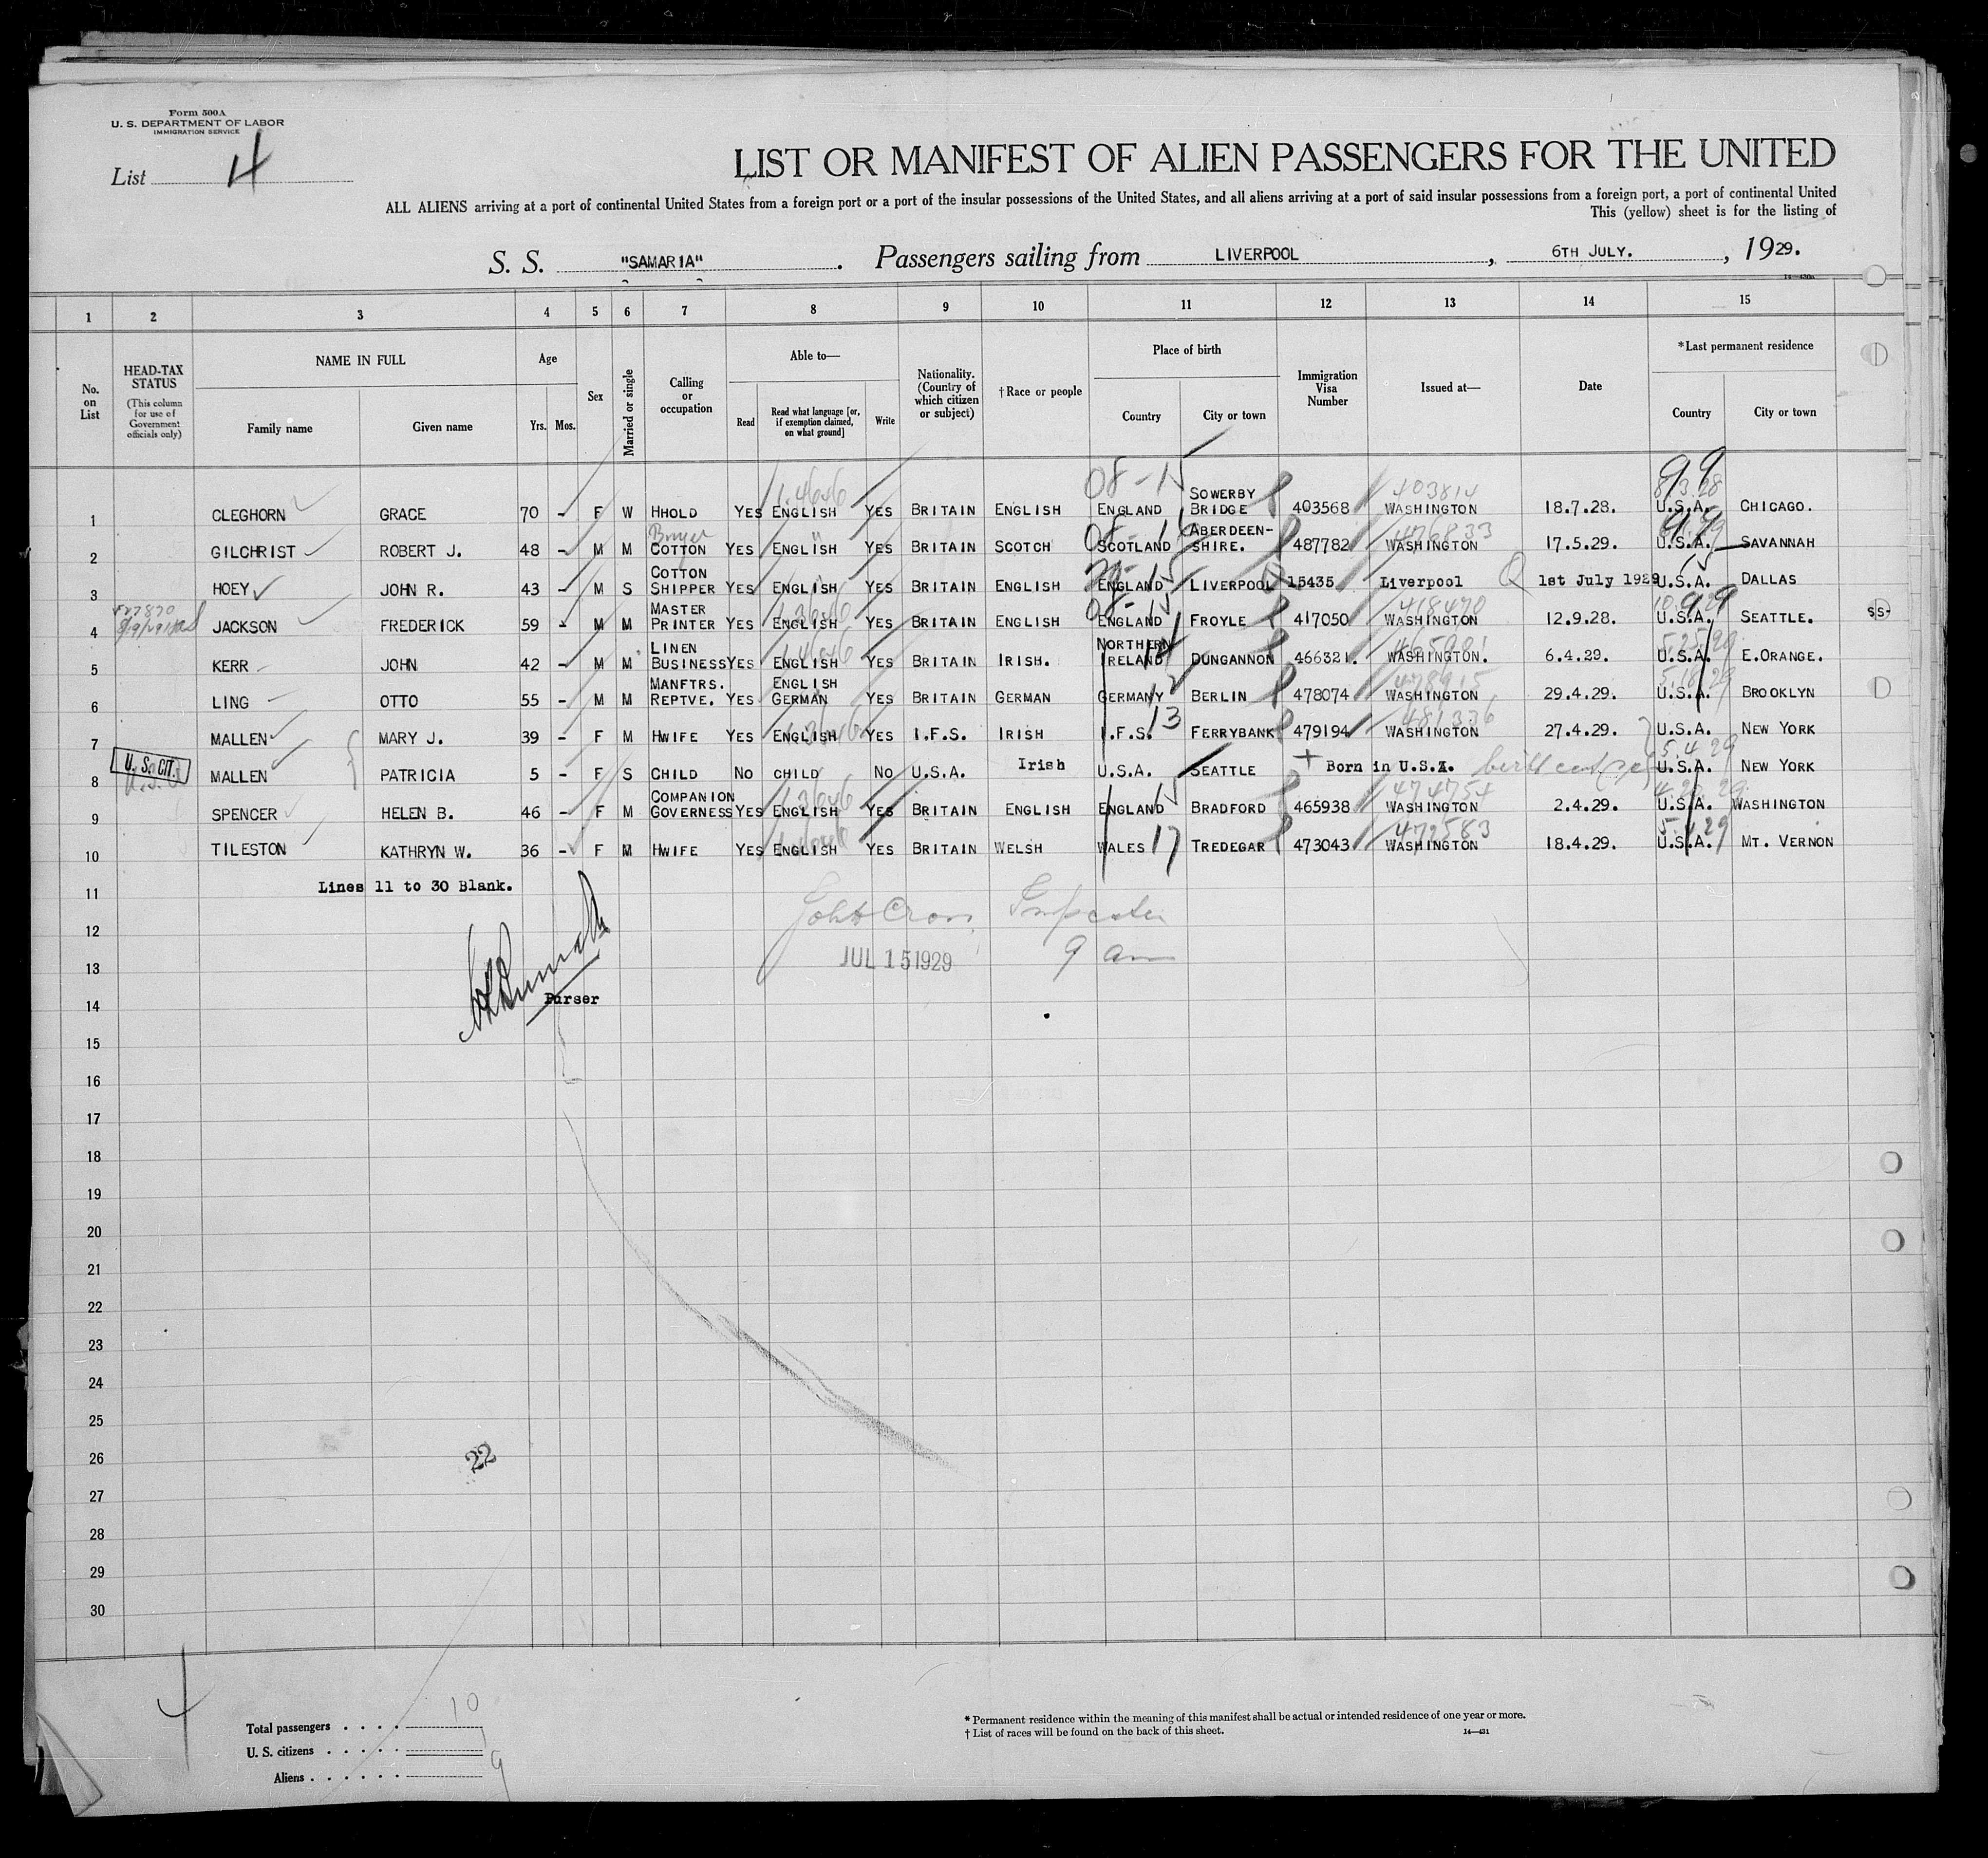 Form 500A
U. S. DEPARTMENT OF LABOR
IMMIGRATION SERVICE
List 4
LIST OR MANIFEST OF ALIEN PASSENGERS FOR THE UNITED
ALL ALIENS arriving at a port of continental United States from a foreign port or a port of the insular possessions of the United States, and all aliens arriving at a port of said insular possessions from a foreign port, a port of continental United
This (yellow) sheet is for the listing of
S. S. "SAMARIA". Passengers sailing from LIVERPOOL, 6TH JULY., 1929.
1 2 3 4 5 6 7 8 9 10 11 12 13 14 15
No. on List
HEAD-TAX STATUS (This column for use of Government officials only)
NAME IN FULL
Family name
Given name
Age
Yrs. Mos.
Sex
Married or single
Calling or occupation
Able to—
Read
Read what language [or, if exemption claimed, on what ground]
Write
Nationality. (Country of which citizen or subject)
†Race or people
Place of birth
Country
City or town
Immigration Visa Number
Issued at—
Date
*Last permanent residence
Country
City or town
1 CLEGHORN GRACE 70 - F W HHOLD YES ENGLISH YES BRITAIN ENGLISH ENGLAND SOWERBY BRIDGE 403568 WASHINGTON 18.7.28. U.S.A. CHICAGO.
08-15 403814
2 GILCHRIST ROBERT J. 48 - M M Buyer COTTON YES ENGLISH YES BRITAIN SCOTCH SCOTLAND ABERDEEN-SHIRE. 487782 WASHINGTON 17.5.29. U.S.A. SAVANNAH
476833
3 HOEY JOHN R. 43 - M S COTTON SHIPPER YES ENGLISH YES BRITAIN ENGLISH ENGLAND LIVERPOOL 15435 Liverpool 1st July 1929 U.S.A. DALLAS
4 JACKSON FREDERICK 59 - M M MASTER PRINTER YES ENGLISH YES BRITAIN ENGLISH ENGLAND FROYLE 417050 WASHINGTON 12.9.28. U.S.A. SEATTLE. SS-
418470
5 KERR JOHN 42 - M M LINEN BUSINESS YES ENGLISH YES BRITAIN IRISH. NORTHERN IRELAND DUNGANNON 466321. WASHINGTON. 6.4.29. U.S.A. E.ORANGE.
6 LING OTTO 55 - M M MANFTRS. REPTVE. YES ENGLISH GERMAN YES BRITAIN GERMAN GERMANY BERLIN 478074 WASHINGTON 29.4.29. U.S.A. BROOKLYN
478915
7 MALLEN MARY J. 39 - F M HWIFE YES ENGLISH YES I.F.S. IRISH I.F.S. 13 FERRYBANK 479194 WASHINGTON 27.4.29. U.S.A. NEW YORK
481336
U. S. CIT.
8 MALLEN PATRICIA 5 - F S CHILD NO CHILD NO U.S.A. Irish U.S.A. SEATTLE Born in U.S.A. U.S.A. NEW YORK
5.4.29
9 SPENCER HELEN B. 46 - F M COMPANION GOVERNESS YES ENGLISH YES BRITAIN ENGLISH ENGLAND BRADFORD 465938 WASHINGTON 2.4.29. U.S.A. WASHINGTON
474754
10 TILESTON KATHRYN W. 36 - F M HWIFE YES ENGLISH YES BRITAIN WELSH WALES 17 TREDEGAR 473043 WASHINGTON 18.4.29. U.S.A. MT. VERNON
472583
11 Lines 11 to 30 Blank.
12
JUL 15 1929 9 am
13
14 Purser
15
16
17
18
19
20
21
22
23
24
25
26 22
27
28
29
30
4
Total passengers . . . . 10
U. S. citizens . . . . . 1
Aliens . . . . . . 9
* Permanent residence within the meaning of this manifest shall be actual or intended residence of one year or more.
† List of races will be found on the back of this sheet. 14—431